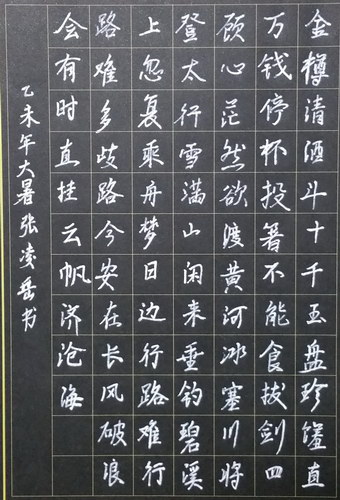 金樽清酒斗十千玉盘珍馐直
万钱停杯投箸不能食拔剑四
顾心茫然欲渡黄河冰塞川将
登太行雪满山闲来垂钓碧溪
上忽复乘舟梦日边行路难行
路难多歧路今安在长风破浪
会有时直挂云帆济沧海
乙未年大暑张凌岳书